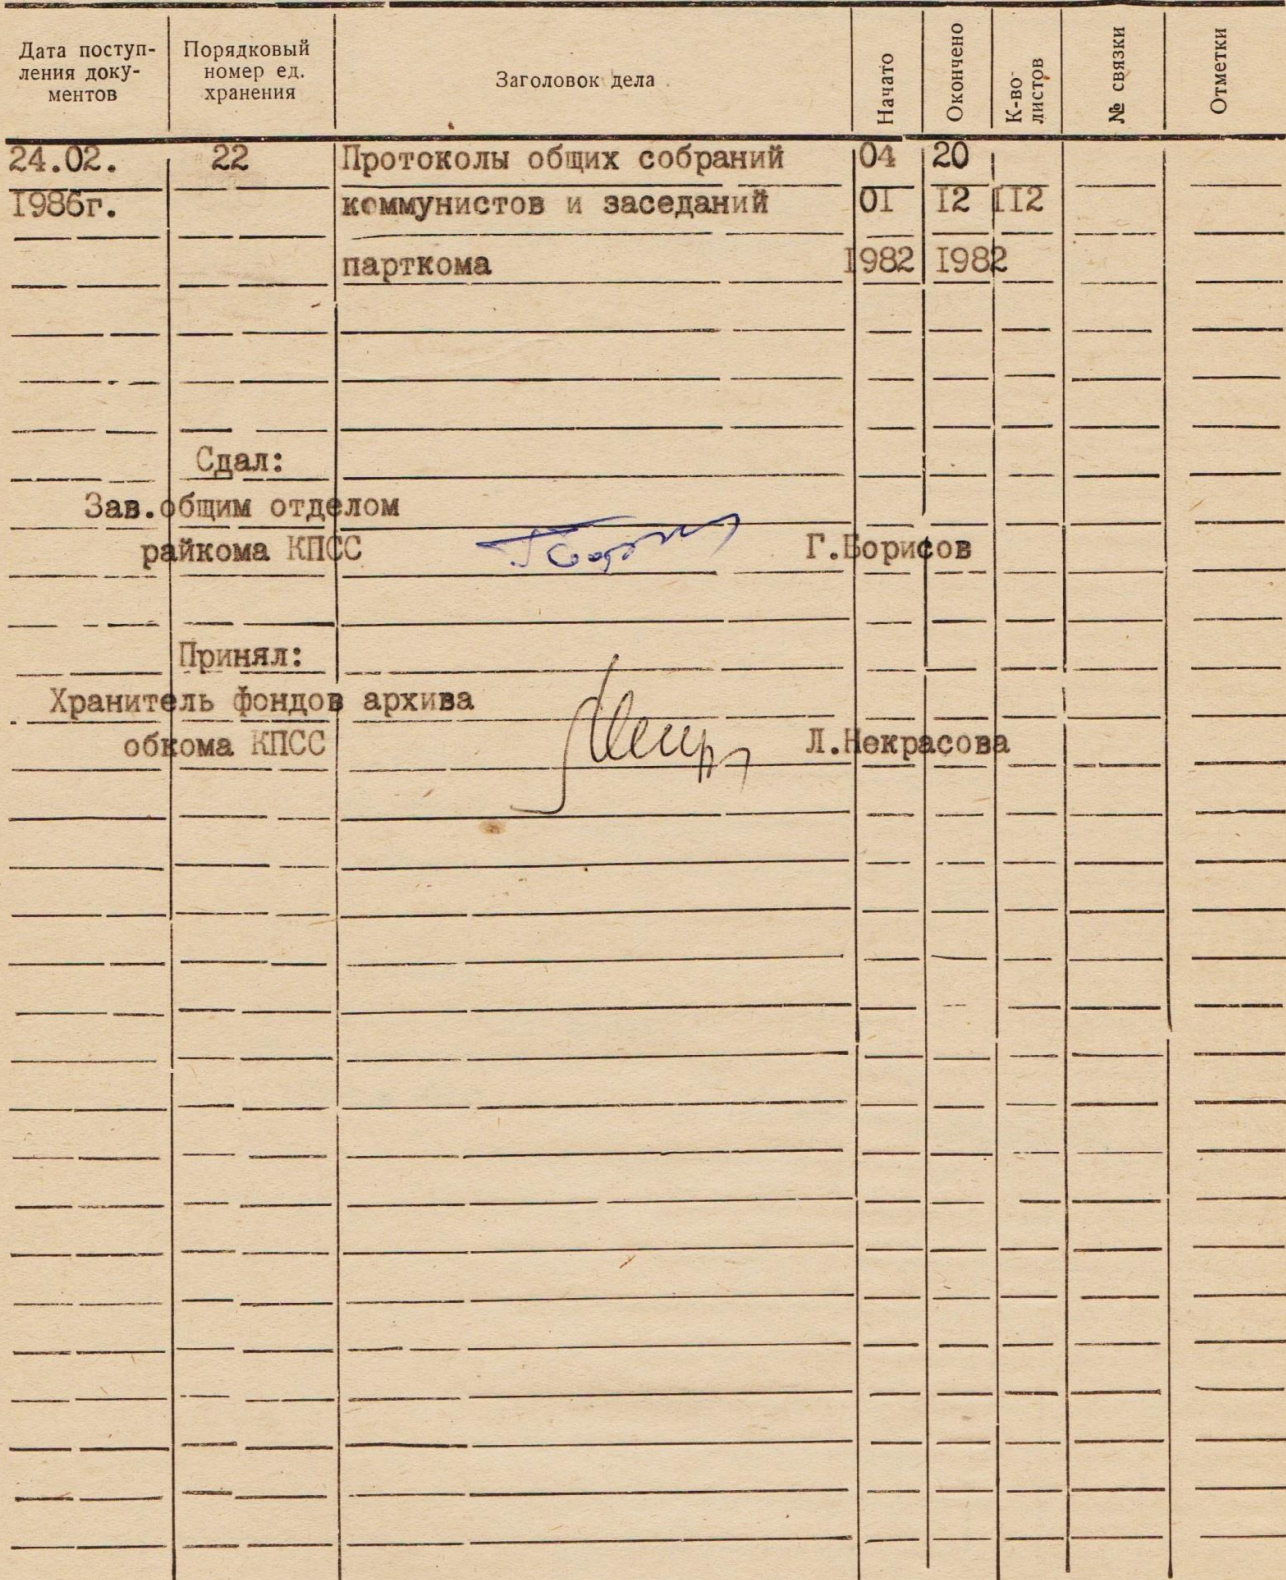 Дата поступ-
ления доку-
ментов
Порядковый
номер ед.
хранения
Заголовок дела
Начато
Окончено
К-во
листов
№ связки
Отметки
24.02. 22 Протоколы общих собраний 04 20
I986г. коммунистов и заседаний 0I I2 II2
парткома I982 I982
Сдал:
Зав.общим отделом
райкома КПСС Г.Борисов
Принял:
Хранитель фондов архива
обкома КПСС Л.Некрасова